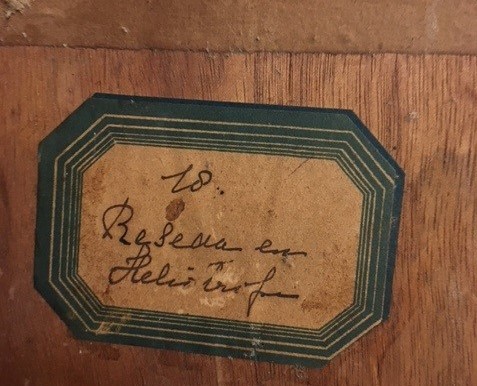 18.
Reseda en
Heliotrope